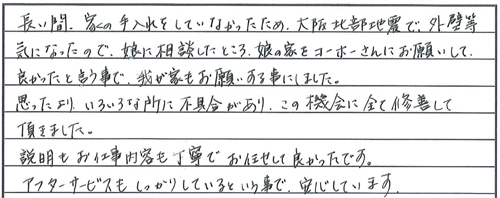 長い間、家の手入れをしていなかったため、大阪北部地震で、外壁等
気になったので、娘に相談したところ、娘の家をコーホーさんにお願いして、
良かったと言う事で、我が家もお願いする事にしました。
思ったより、いろいろな所に不具合があり、この機会に全て修善して
頂きました。
説明もお仕事内容も丁寧でお任せして良かったです。
アフターサービスもしっかりしているという事で、安心しています。